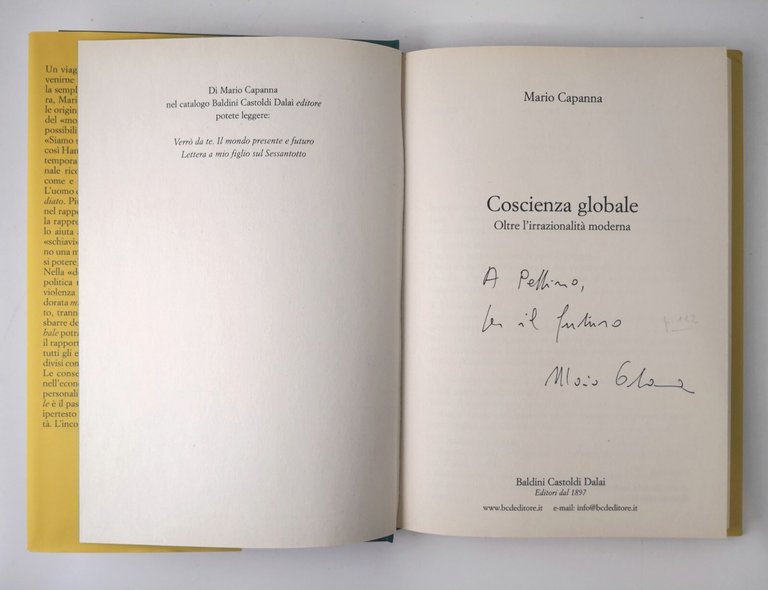 Un viag
venirne
la sempl
ra, Mari
le origin
del «mo
possibili
«Siamo
così Han
tempora
nale rico
come e
L'uomo
diato. Pi
nel rapp
la rappre
lo aiuta
«schiavi»
no una m
si potere,
Nella «d
politica
violenza
dorata m
to, trann
sbarre de
bale potr
il rapport
tutti gli e
divisi con
Le conse
nell'econ
personali
le è il pas
ipertesto
tà. L'inco
Di Mario Capanna
nel catalogo Baldini Castoldi Dalai editore
potete leggere:
Verrò da te. Il mondo presente e futuro
Lettera a mio figlio sul Sessantotto
Mario Capanna
Coscienza globale
Oltre l'irrazionalità moderna
A Pellino,
per il futuro
Mario Capanna
Baldini Castoldi Dalai
Editori dal 1897
www.bcdeditore.it e-mail: info@bcdeditore.it